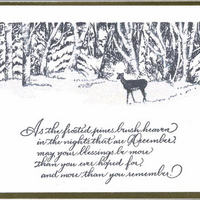 As the frosted pines brush heaven
in the nights that are December
may your blessings be more
than you ever hoped for
and more than you remember